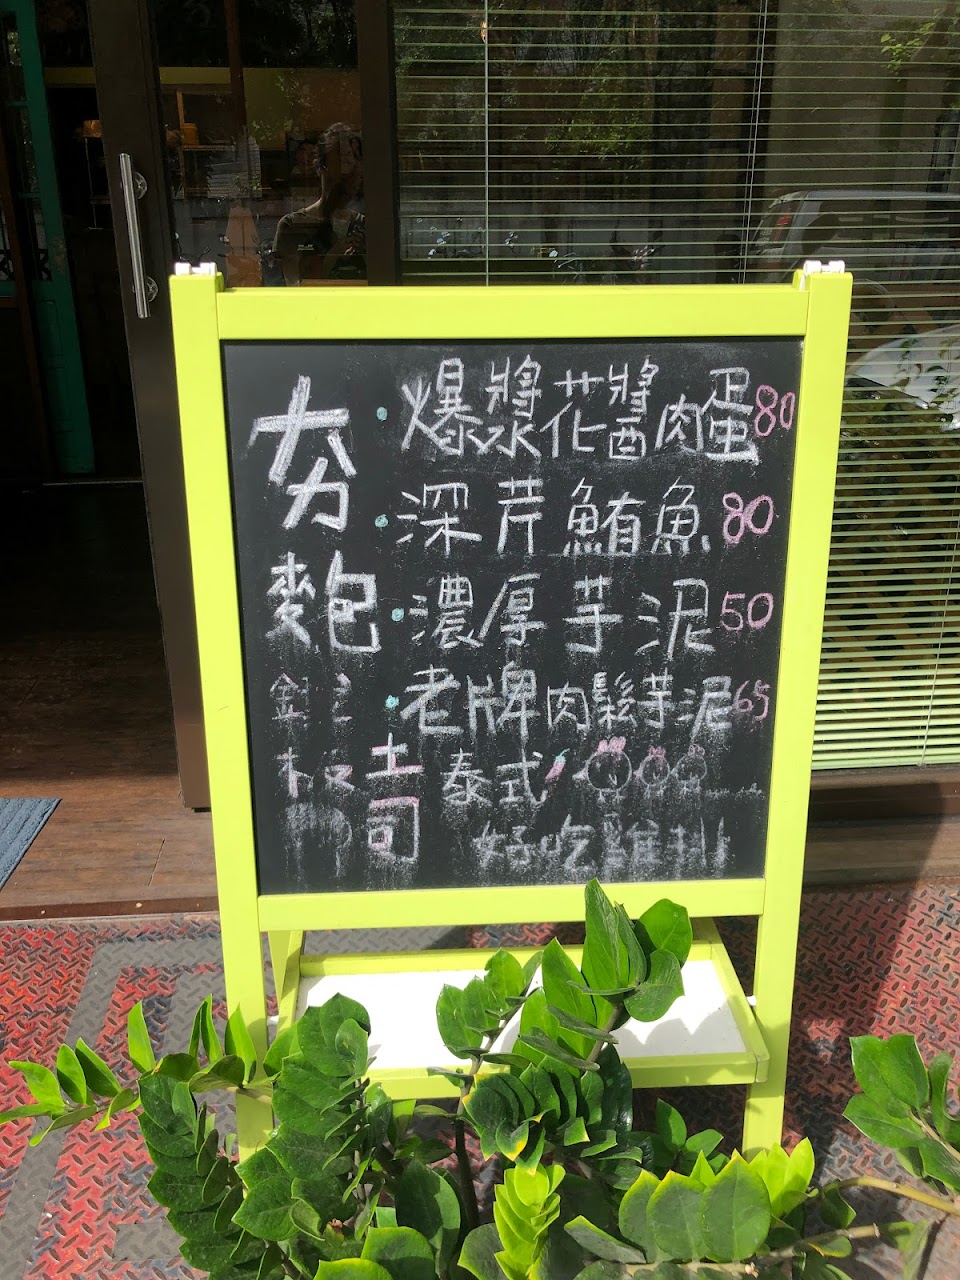 夯麭
土司
爆漿花醬肉蛋80
深芹鮪魚80
濃厚芋泥50
老牌肉鬆芋泥65
泰式
好吃雞排